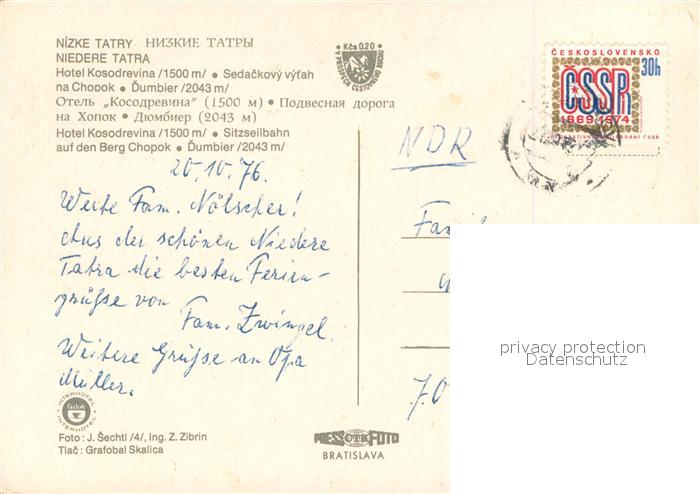 NÍZKE TATRY НИЗКИЕ ТАТРЫ
NIEDERE TATRA
Hotel Kosodrevina /1500 m/ • Sedačkový výťah
na Chopok • Ďumbier /2043 m/
Отель „Косодревина" (1500 м) • Подвесная дорога
на Хопок • Дюмбиер (2043 м)
Hotel Kosodrevina /1500 m/ • Sitzseilbahn
auf den Berg Chopok • Ďumbier /2043 m/
Kčs 0.20
ČESKOSLOVENSKO
30h
ČSSR
1969-1974
20.10.76.
Werte Fam. Nölscher!
Aus der schönen Niedere
Tatra die besten Ferien-
grüße von
Fam. Zwingel.
Weitere Grüße an Opa
Müller.
NDR
Fami
70
privacy protection
Datenschutz
INTERHOTEL
čedok
INTERHOTEL
Foto: J. Šechtl /4/, Ing. Z. Zibrin
Tlač: Grafobal Skalica
PRESSFOTO
BRATISLAVA